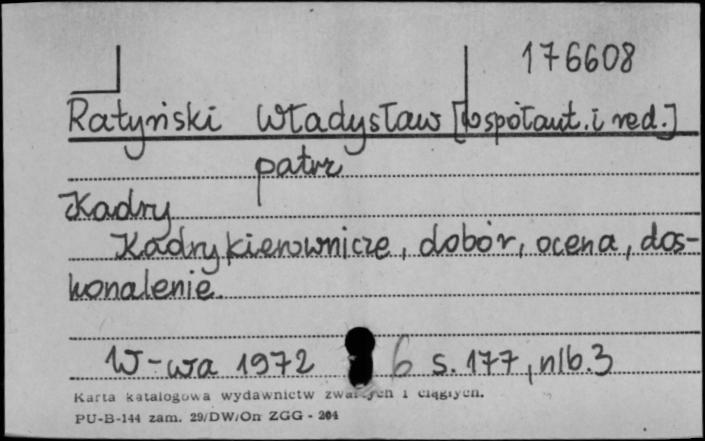 176608
Ratyński Władysław [współaut. i red.]
patrz
Kadry
Kadry kierownicze, dobór, ocena, dos-
konalenie.
W-wa 1972 6 s. 177, nlb. 3
Karta katalogowa wydawnictw zwartych i ciągłych.
PU-B-144 zam. 29/DW/On ZGG - 204